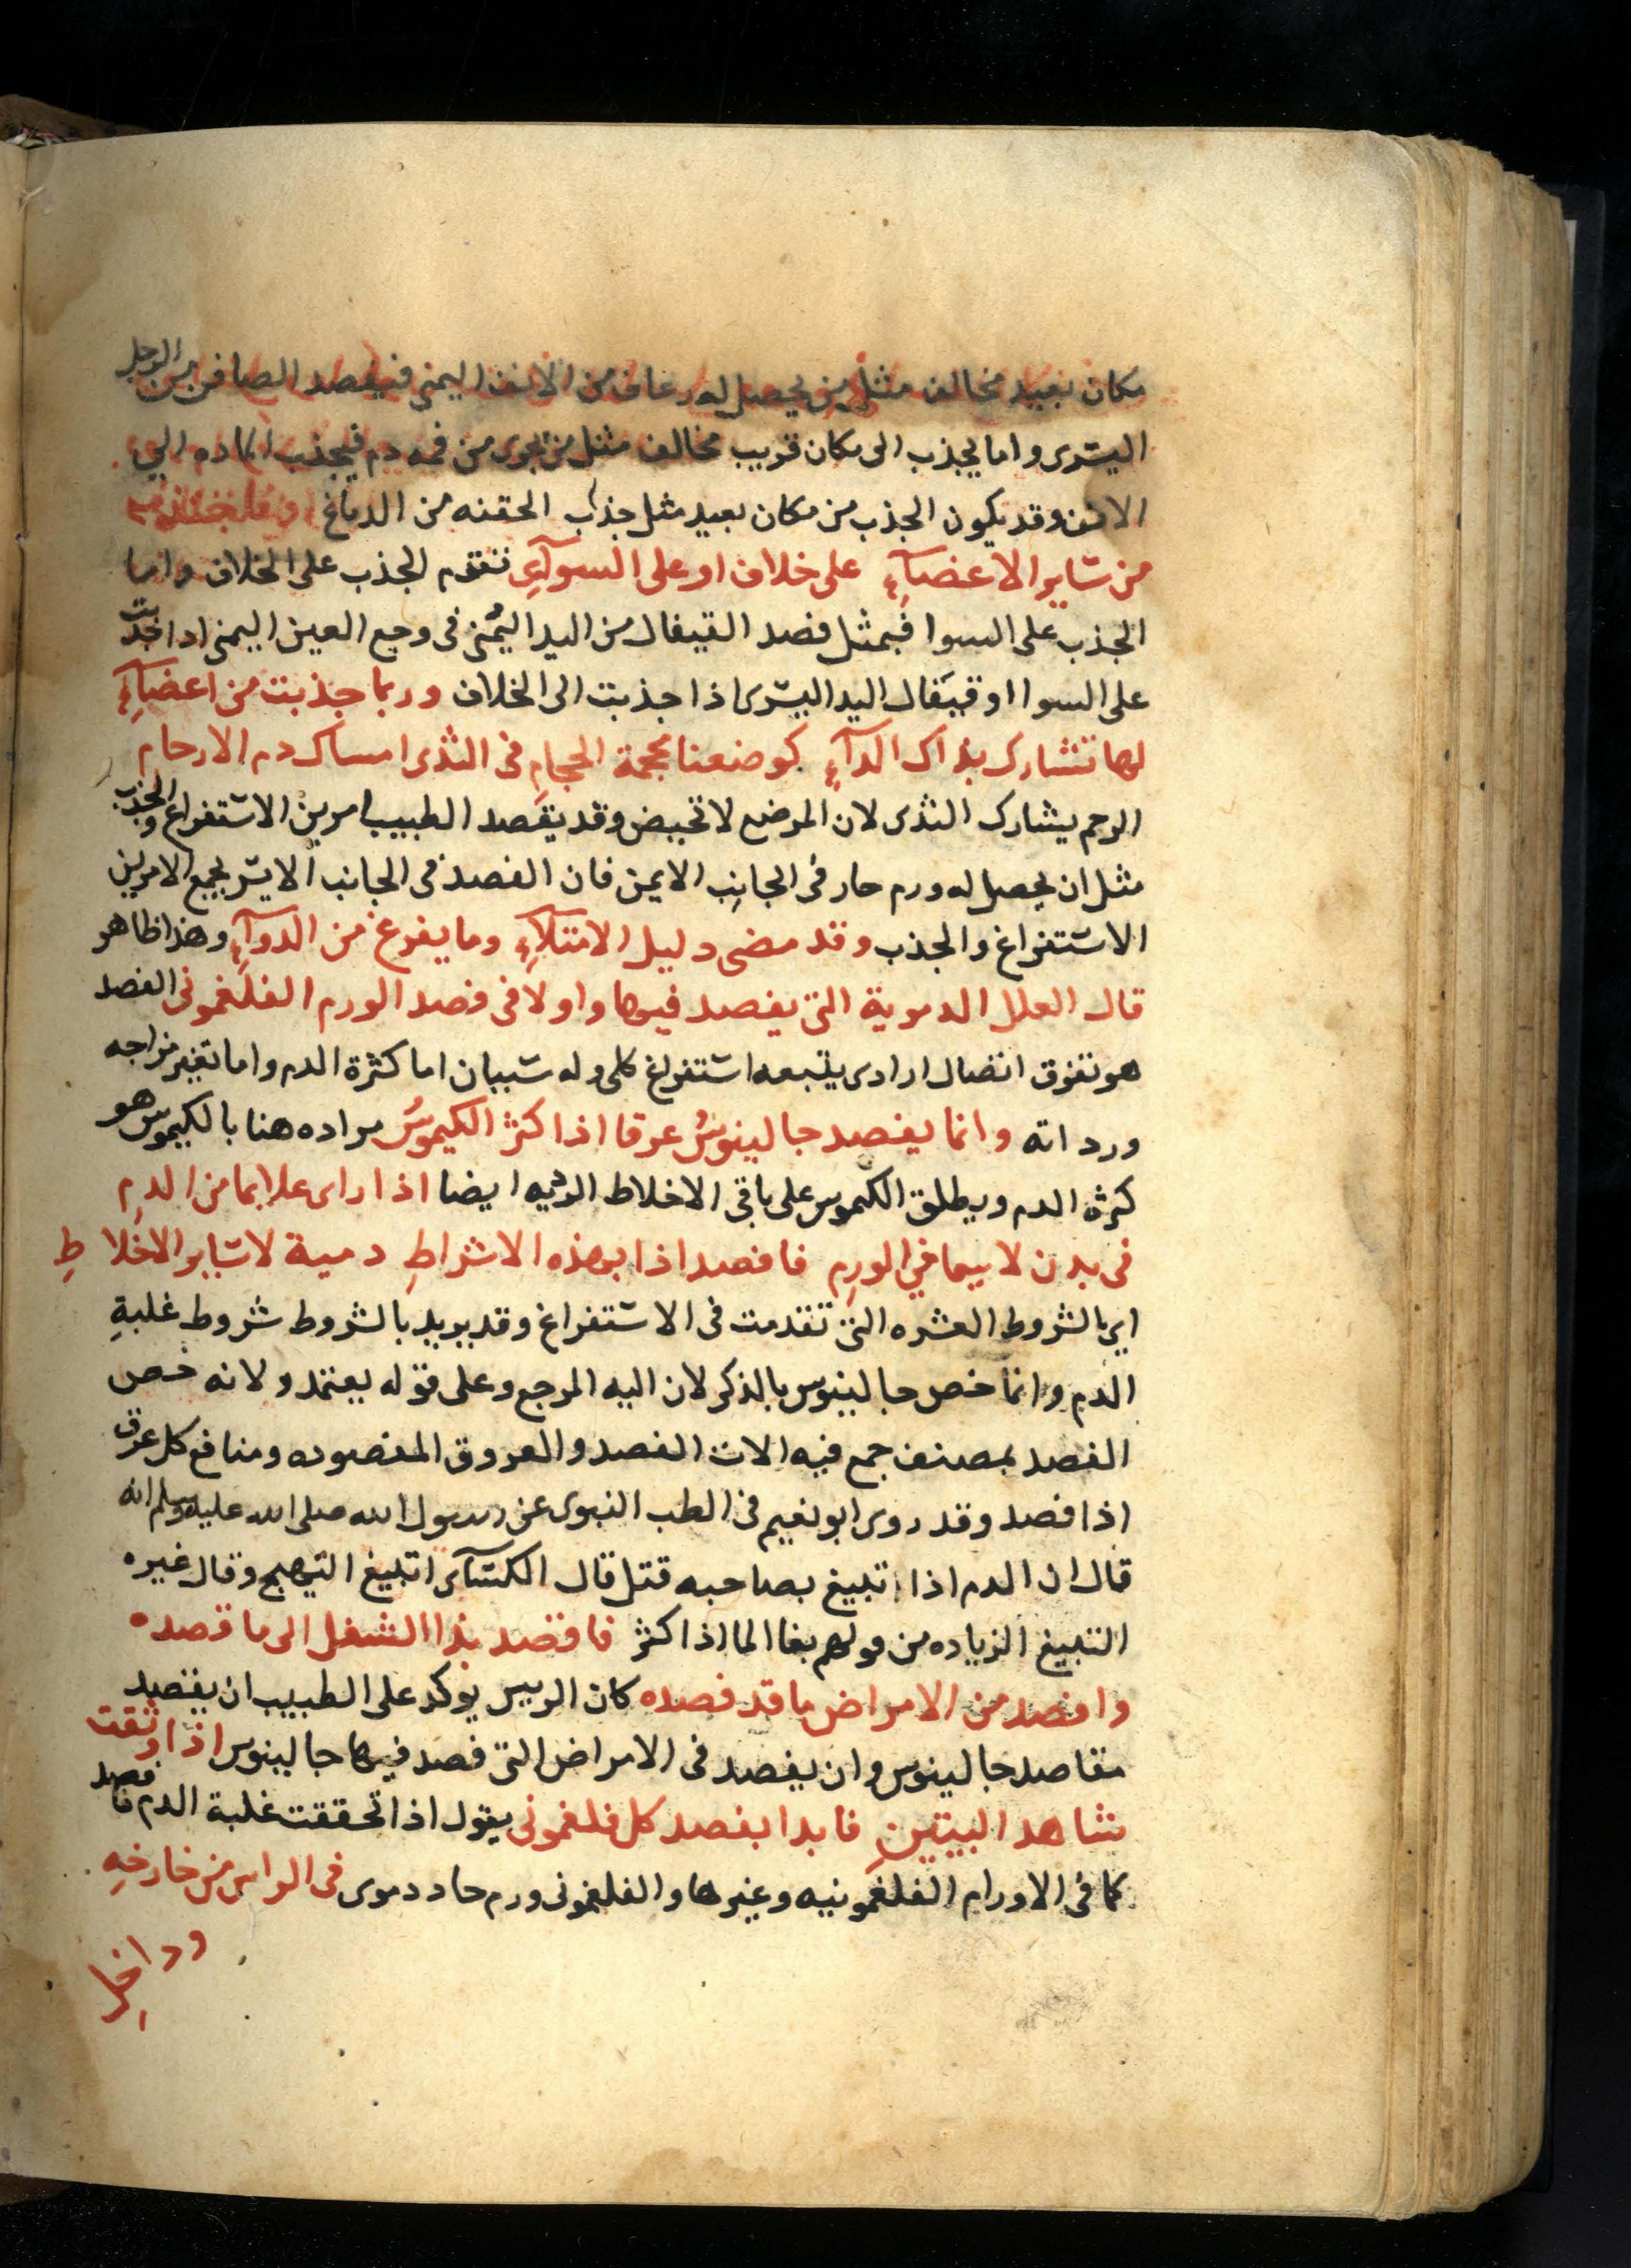 مكان بعيد مخالف مثل من يحصل له رعاف من الانف اليمنى فيفصد الصافن من الرجل
اليسرى واما يجذب الى مكان قريب مخالف مثل من يجرى من فمه دم فيجذب الماده الى
الانف وقد يكون الجذب من مكان بعيد مثل جذب الحقنه من الدماغ
من سَاير الاعضآءِ على خلاف او على السوآءِ تقدم الجذب على الخلاف واما
الجذب على السوا فبمثل فصد القيفال من اليد اليمنى فى وجع العين اليمنى اذا جذبت
على السوا او قيفال اليد اليسرى اذا جذبت الى الخلاف وربما جذبت من اعضآءِ
لها تشارك بذاك الدآءِ كوضعنا محجمة الحجامِ فى الثدى امساك دم الارحامِ
الرحم يشارك الثدى لان المرضع لا تحيض وقد يقصد الطبيب امرين الاستفراغ والجذب
مثل ان يحصل له ورم حار فى الجانب الايمن فان الفصد فى الجانب الايسر يجمع الامرين
الاستفراغ والجذب وقد مضى دليل الامتلآءِ وما يفرغ من الدوآءِ وهذا ظاهر
قال العلل الدموية التى يفصد فيها واولا فى فصد الورم الفلغمونى الفصد
هو تفرق اتصال ارادى يتبعه استفراغ كلى وله سببان اما كثرة الدم واما تغير مزاجه
ورداته وانما يفصد جالينوسُ عرقا اذا كثر الكيموسُ مراده هنا بالكيموس هو
كثرة الدم ويطلق الكيموس على باقى الاخلاط الرديه ايضا اذا راى علايما من الدمِ
فى بدن لا سيما فى الورمِ فافصد اذا بهذه الاشراطِ دمية لا سَاير الاخلاطِ
اى بالشروط العشره التى تقدمت فى الاستفراغ وقد يريد بالشروط شروط غلبةِ
الدم وانما خص جالينوس بالذكر لان اليه المرجع وعلى قوله يعتمد ولانه خص
الفصد بمصنف جمع فيه الات الفصد والعروق المفصوده ومنافع كل عرق
اذا فصد وقد روى ابو نعيم فى الطب النبوى عن رسول الله صلى الله عليه وسلم انه
قال ان الدم اذا تبيغ بصاحبه قتل قال الكسآى التبيغ التهيج وقال غيره
التبيغ الزياده من قولهم بغا الما اذا كثر فاقصد بذا الشغل الى ما قصده
وافصد من الامراض ما قد فصده كان الرييس يوكد على الطبيب ان يقصد
مقاصد جالينوس وان يفصد فى الامراض التى فصد فيها جالينوس اذا وثقت
بشاهد البيتينِ فابدا بفصد كل فلغمونى يقول اذا تحققت غلبة الدم فافصد
كما فى الاورام الفلغمونيه وغيرها والفلغمونى ورم حاد دموى فى الراس من خارجهِ
وداخلِ